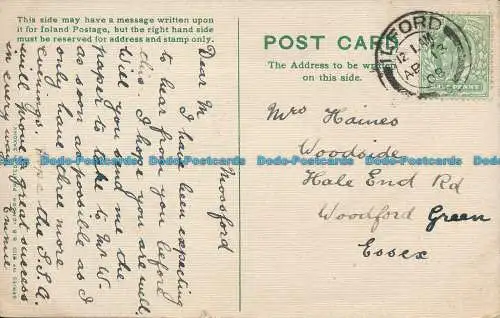 This side may have a message written upon
it for Inland Postage, but the right hand side
must be reserved for address and stamp only.
Mossford
Dear M
I have been expecting
to hear from you before
this. I hope you are well.
Will you send me the
paper to take to Mr W-
as soon as possible as I
only have three more
evenings. Hope the S.S.A.
will prove a great success
in every way
Emmie
POST CARD
The Address to be written
on this side.
ILFORD
12 1 AM
AP 3
08
HALF PENNY
Mrs Haines
Woodside
Hale End Rd
Woodford Green
Essex
Dodo-Postcards Dodo-Postcards Dodo-Postcards Dodo-Postcards Dodo-Postcards